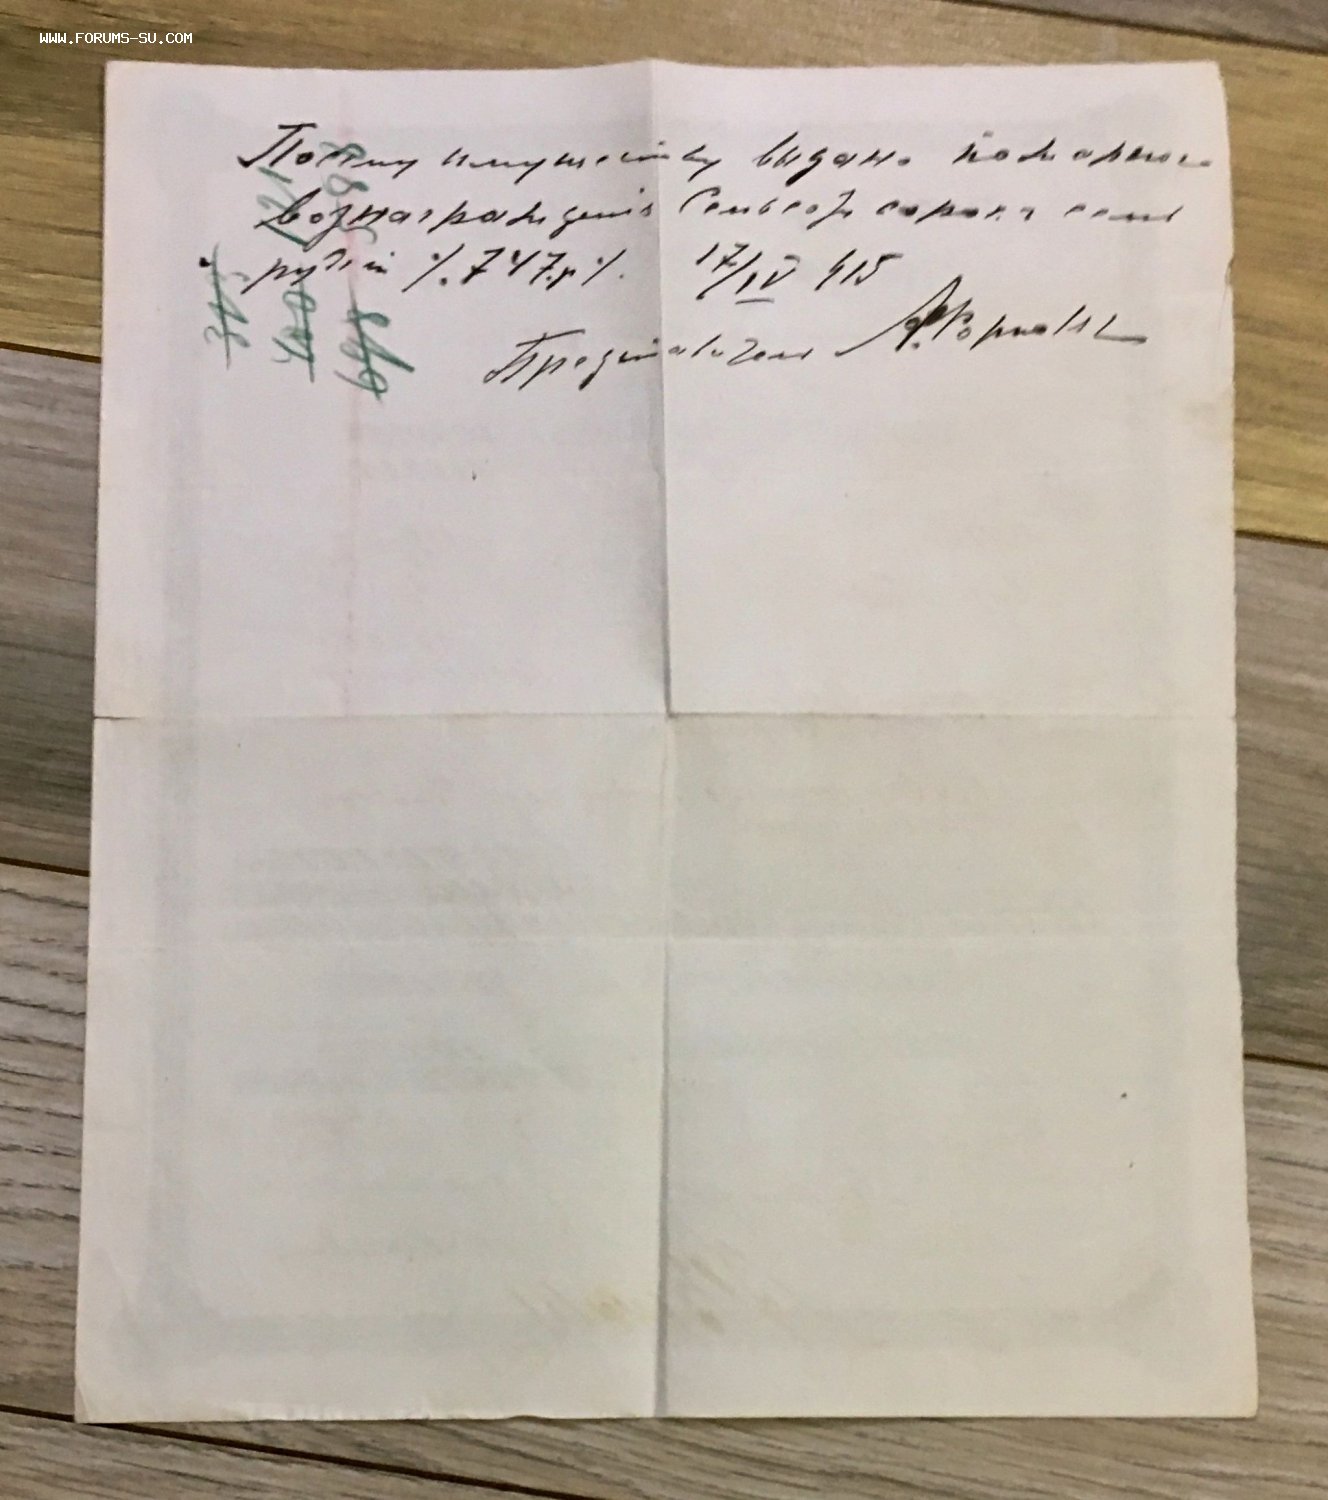 WWW.FORUMS-SU.COM
По сему имуществу выдано пожарного
вознагражденiя Семьсотъ сорокъ семь
рублей %. 747.р %. 17/IV 915
Представитель